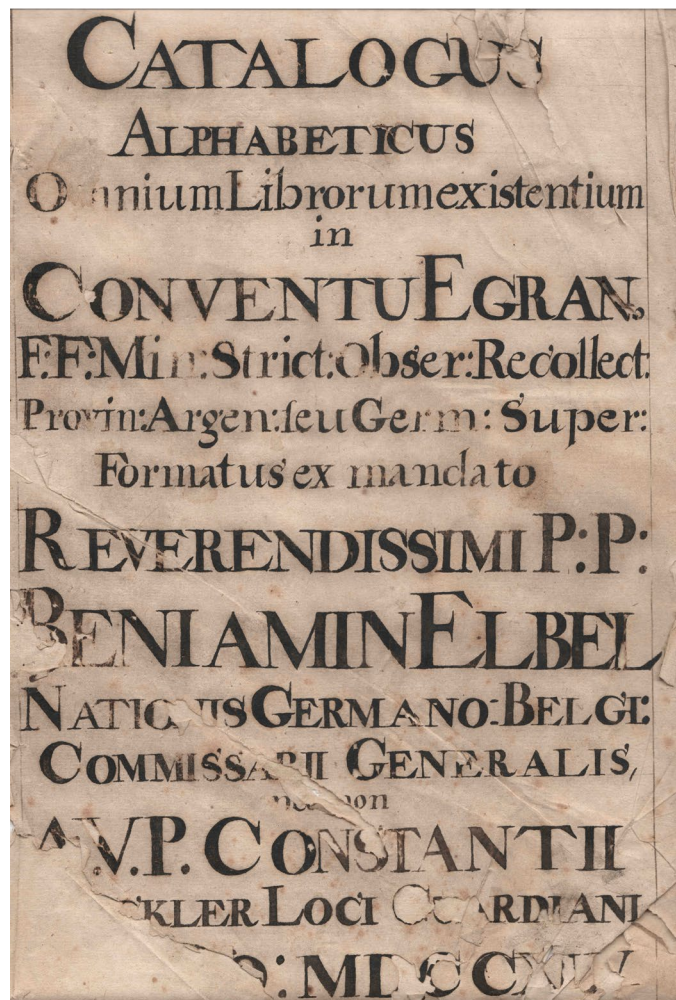 CATALOGUS
ALPHABETICUS
Omnium Librorum existentium
in
CONVENTU EGRAN.
F:F:Min:Strict:Obser:Recollect:
Provin:Argen:seu Germ: Super:
Formatus ex mandato
REVERENDISSIMI P:P:
BENIAMIN ELBEL
NATIONIS GERMANO:BELGI:
COMMISSARII GENERALIS,
nec non
A.V.P. CONSTANTII
LOCI GUARDIANI